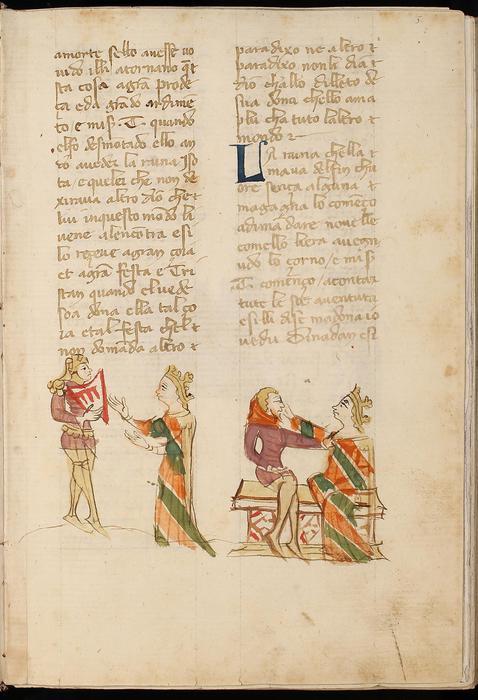 amorte sello auesse uo
uido illi atornano qe
sta cosa agra prode
ça eda grado ardime
to / e mis T quando
elfo desmotado ello an
dò aueder la raina Iso
ta / e quelei che non de
xiraua altro dio che
lui inquesto modo li
uene alencotra esi
lo receue agran çoia
et agra festa e Tri
stan quando el uede
soa dona ella tal ço
ia etal festa chel
non domada altro
paradixo ne altro
paradixo nonli dia
dio cha llo dilleto de
sua dona chello ama
plu cha tuto laltro
mondo
La raina chella
maua delfin chu
ore sença alguna
magagna lo começo
adimadare nouelle
comello liera auegn
udo lo corno / e mis
T començo / acontar
tute le soe auenture
esilli dise madona io
uedu Dinadan esi